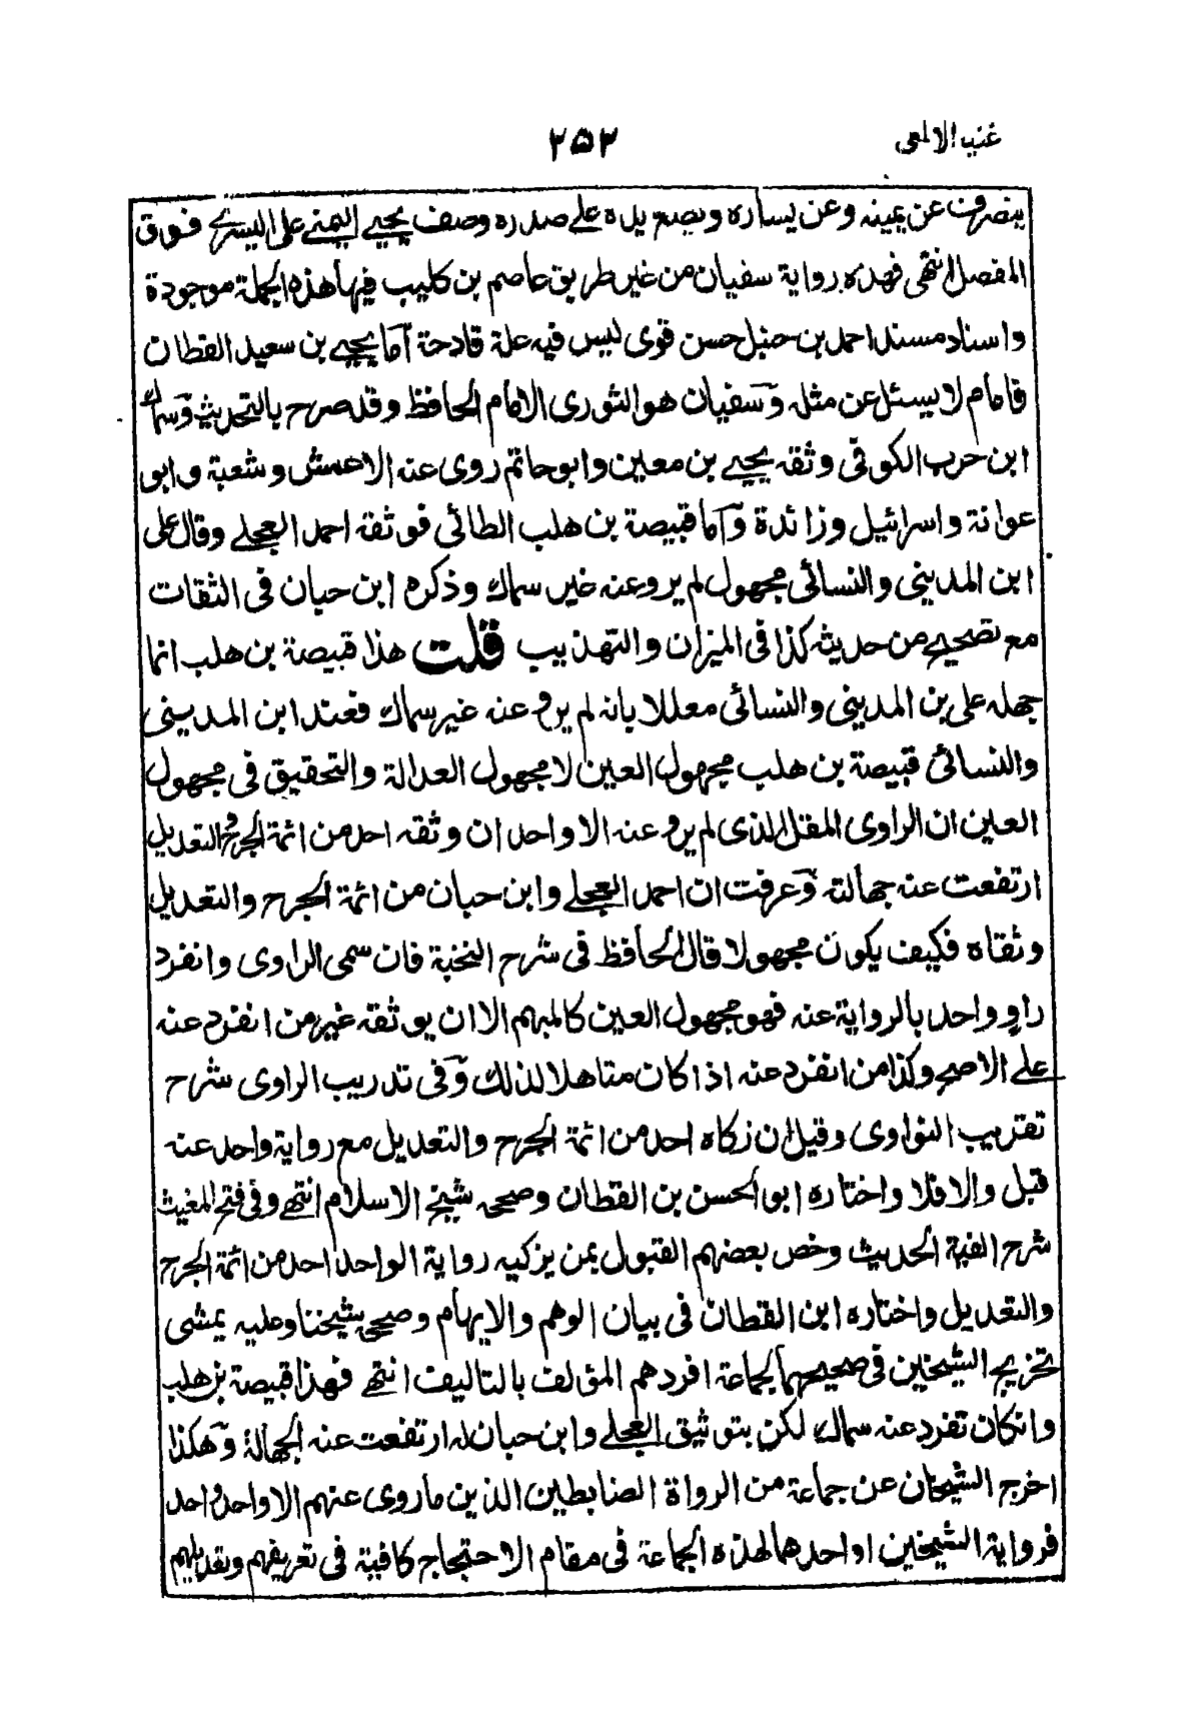 غنية الالمعی
۲۵۲
ینصرف عن یمینه وعن یساره ویضع یده علے صدره وصف یحیے الیمنے علی الیسرے فوق
المفصل انتهی فهذه روایة سفیان من غیر طریق عاصم بن کلیب فیها هذه الجملة موجودة
واسناد مسند احمد بن حنبل حسن قوی لیس فیه علة قادحة اما یحیے بن سعید القطان
فامام لا یسئل عن مثله وسفیان هو الثوری الامام الحافظ وقد صرح بالتحدیث وسماك
ابن حرب الکوفی وثقه یحیے بن معین وابو حاتم روی عنه الاعمش وشعبة وابو
عوانة واسرائیل وزائدة واما قبیصة بن هلب الطائی فوثقه احمد العجلے وقال علی
ابن المدینی والنسائی مجهول لم یرو عنه غیر سماك وذکره ابن حبان فی الثقات
مع تصحیح من حدیثه کذا فی المیزان والتهذیب قلت هذا قبیصة بن هلب انما
جهله علی بن المدینی والنسائی معللا بانه لم یرو عنه غیر سماك فعند ابن المدینی
والنسائی قبیصة بن هلب مجهول العین لا مجهول العدالة والتحقیق فی مجهول
العین ان الراوی المقل الذی لم یرو عنه الا واحد ان وثقه احد من ائمة الجرح والتعدیل
ارتفعت عنه جهالته وعرفت ان احمد العجلے وابن حبان من ائمة الجرح والتعدیل
وثقاه فکیف یکون مجهولا قال الحافظ فی شرح النخبة فان سمی الراوی وانفرد
راوٍ واحد بالروایة عنه فهو مجهول العین کالمبهم الا ان یوثقه غیر من انفرد عنه
علے الاصح وکذا من انفرد عنه اذا کان متاهلا لذلك وفی تدریب الراوی شرح
تقریب النواوی وقیل ان زکاه احد من ائمة الجرح والتعدیل مع روایة واحد عنه
قبل والا فلا واختاره ابو الحسن بن القطان وصححه شیخ الاسلام انتهے وفی فتح المغیث
شرح الفیة الحدیث وخص بعضهم القبول بمن یزکیه روایة الواحد احد من ائمة الجرح
والتعدیل واختاره ابن القطان فی بیان الوهم والایهام وصححه شیخنا وعلیه یمشی
تخریج الشیخین فی صحیحیهما لجماعة افردهم المؤلف بالتالیف انتهے فهذا قبیصة بن هلب
وان کان تفرد عنه سماك لکن بتوثیق العجلے وابن حبان له ارتفعت عنه الجهالة وهکذا
اخرج الشیخان عن جماعة من الرواة الضابطین الذین ما روی عنهم الا واحد واحد
فروایة الشیخین او احدهما لهذه الجماعة فی مقام الاحتجاج کافیة فی تعریفهم وتعدیلهم